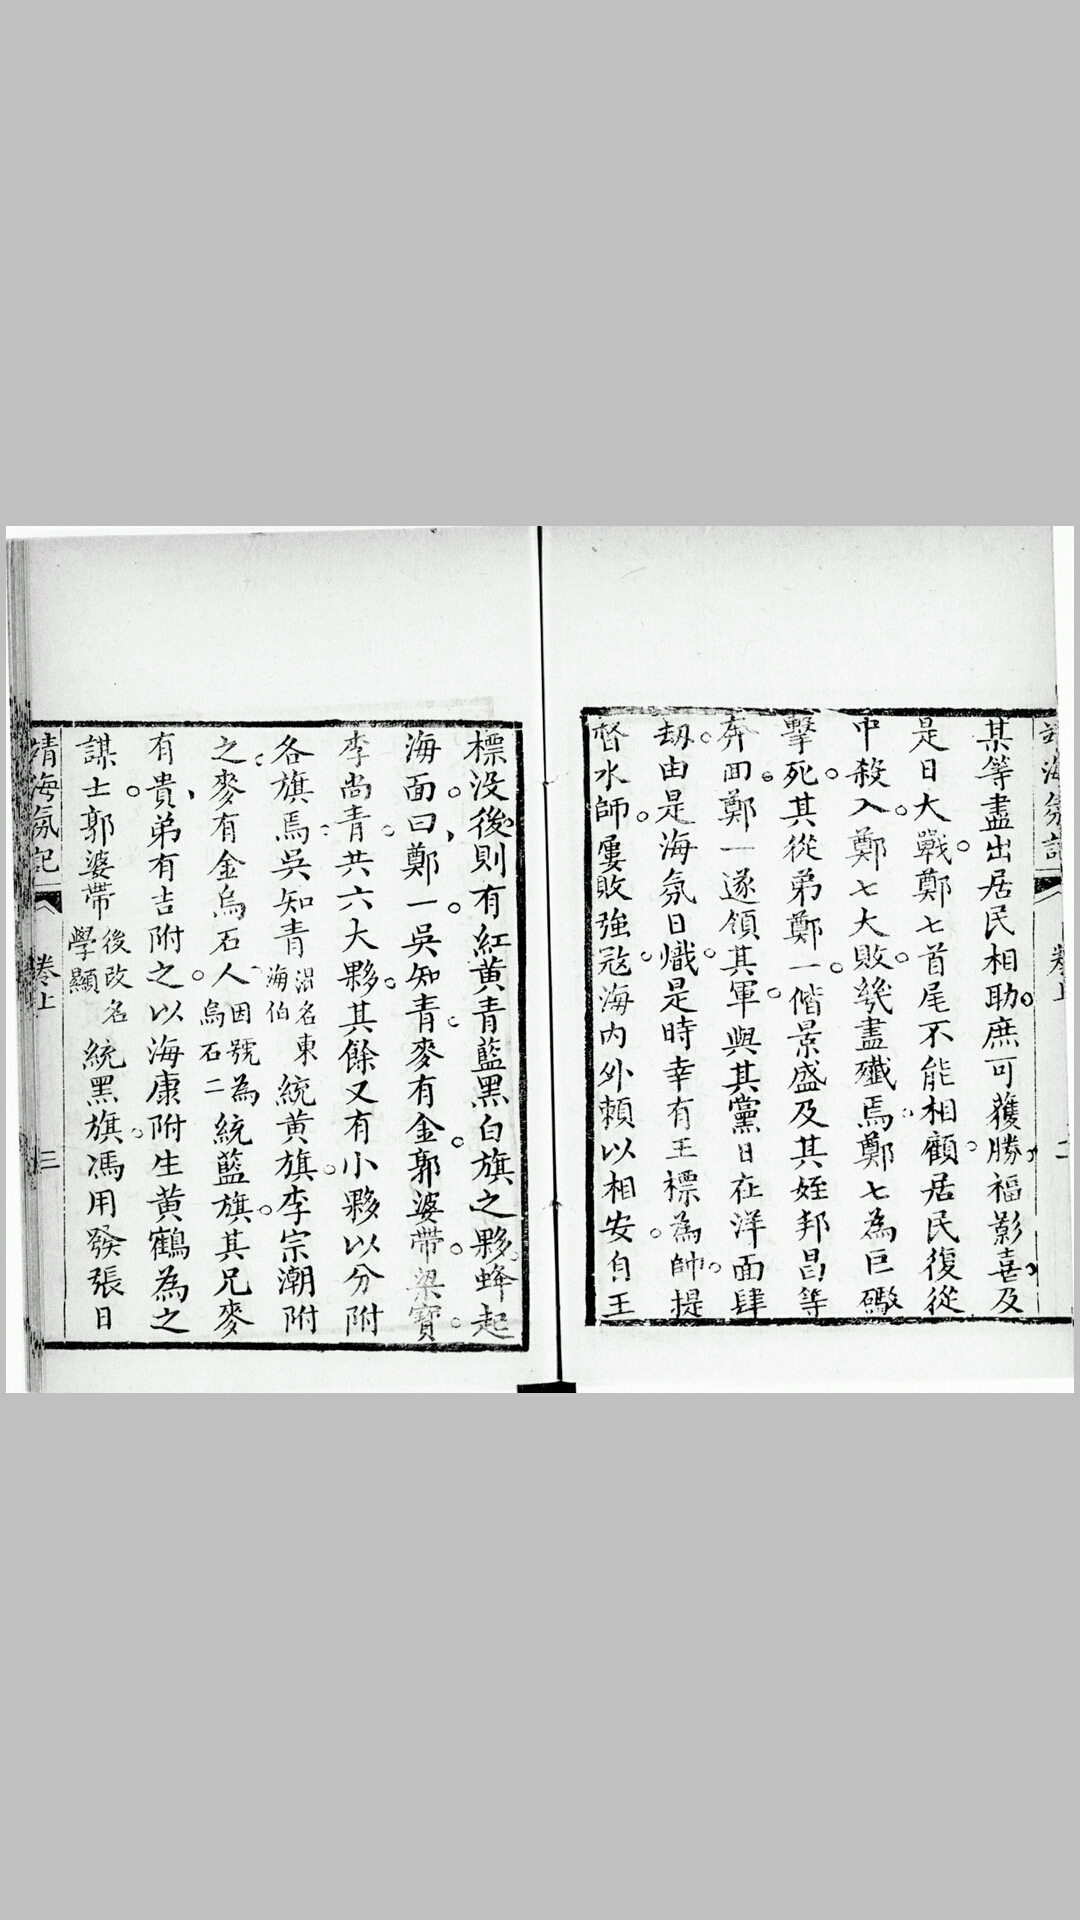 靖海氛記 卷上 二
某等盡出居民相助。庶可獲勝。福影喜。及
是日大戰。鄭七首尾不能相顧。居民復從
中殺入。鄭七大敗。幾盡殲焉。鄭七為巨礮
擊死。其從弟鄭一。偕景盛及其姪邦昌等
奔回。鄭一遂領其軍。與其黨日在洋面肆
劫。由是海氛日熾。是時幸有王標為帥。提
督水師。屢敗強寇。海內外賴以相安。自王
標没後。則有紅黃青藍黑白旗之夥。蜂起
海面。曰鄭一。吳知青。麥有金。郭婆帶。梁寶。
李尚青。共六大夥。其餘又有小夥以分附
各旗焉。吳知青
渾名東
海伯
統黃旗。李宗潮附
之。麥有金烏石人
因號為
烏石二
統藍旗。其兄麥
有貴，弟有吉附之。以海康附生黃鶴為之
謀士。郭婆帶
後改名
學顯
統黑旗。馮用發張日
靖海氛記 卷上 三